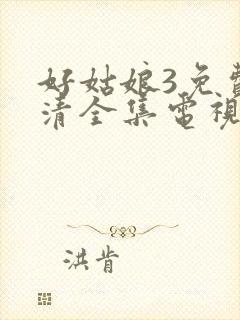 好姑娘3免費
清全集電視
洪肯